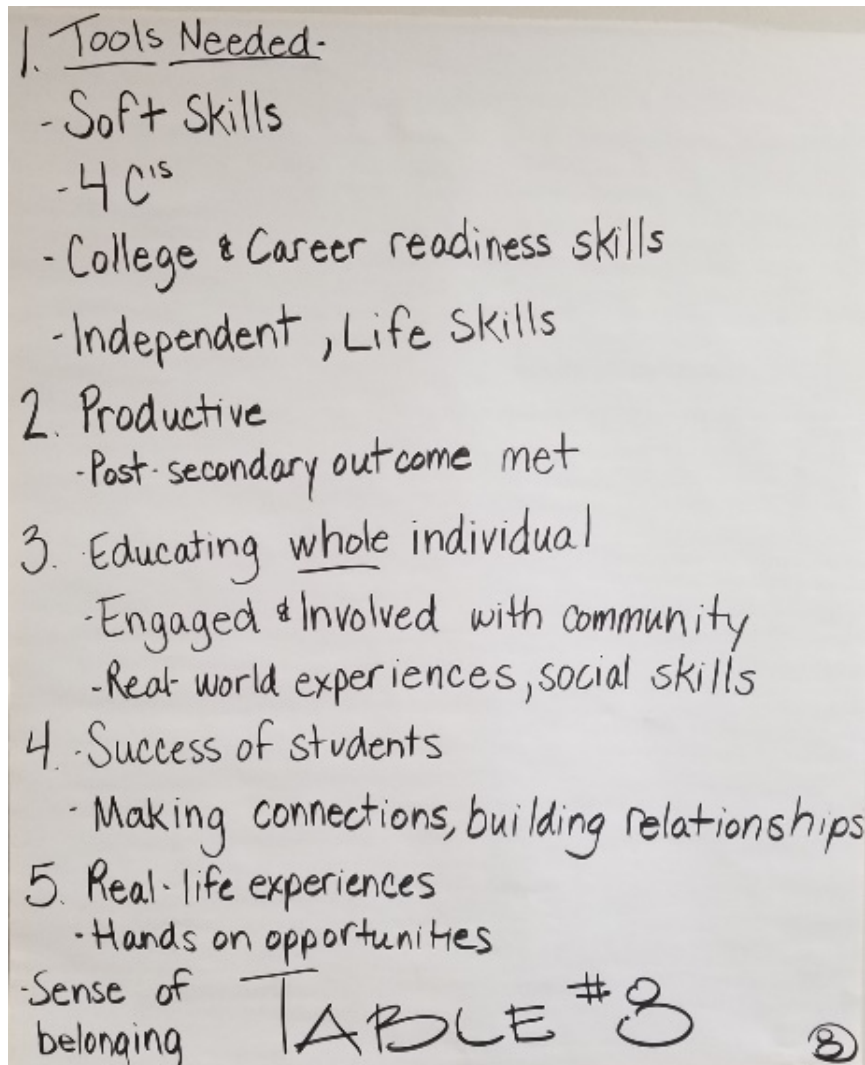 1. Tools Needed-
- Soft Skills
- 4 C's
- College & Career readiness skills
- Independent, Life Skills
2. Productive
- Post-secondary outcome met
3. Educating whole individual
- Engaged & Involved with community
- Real-world experiences, social skills
4. Success of students
- Making connections, building relationships
5. Real-life experiences
- Hands on opportunities
- Sense of
belonging
TABLE #8
8